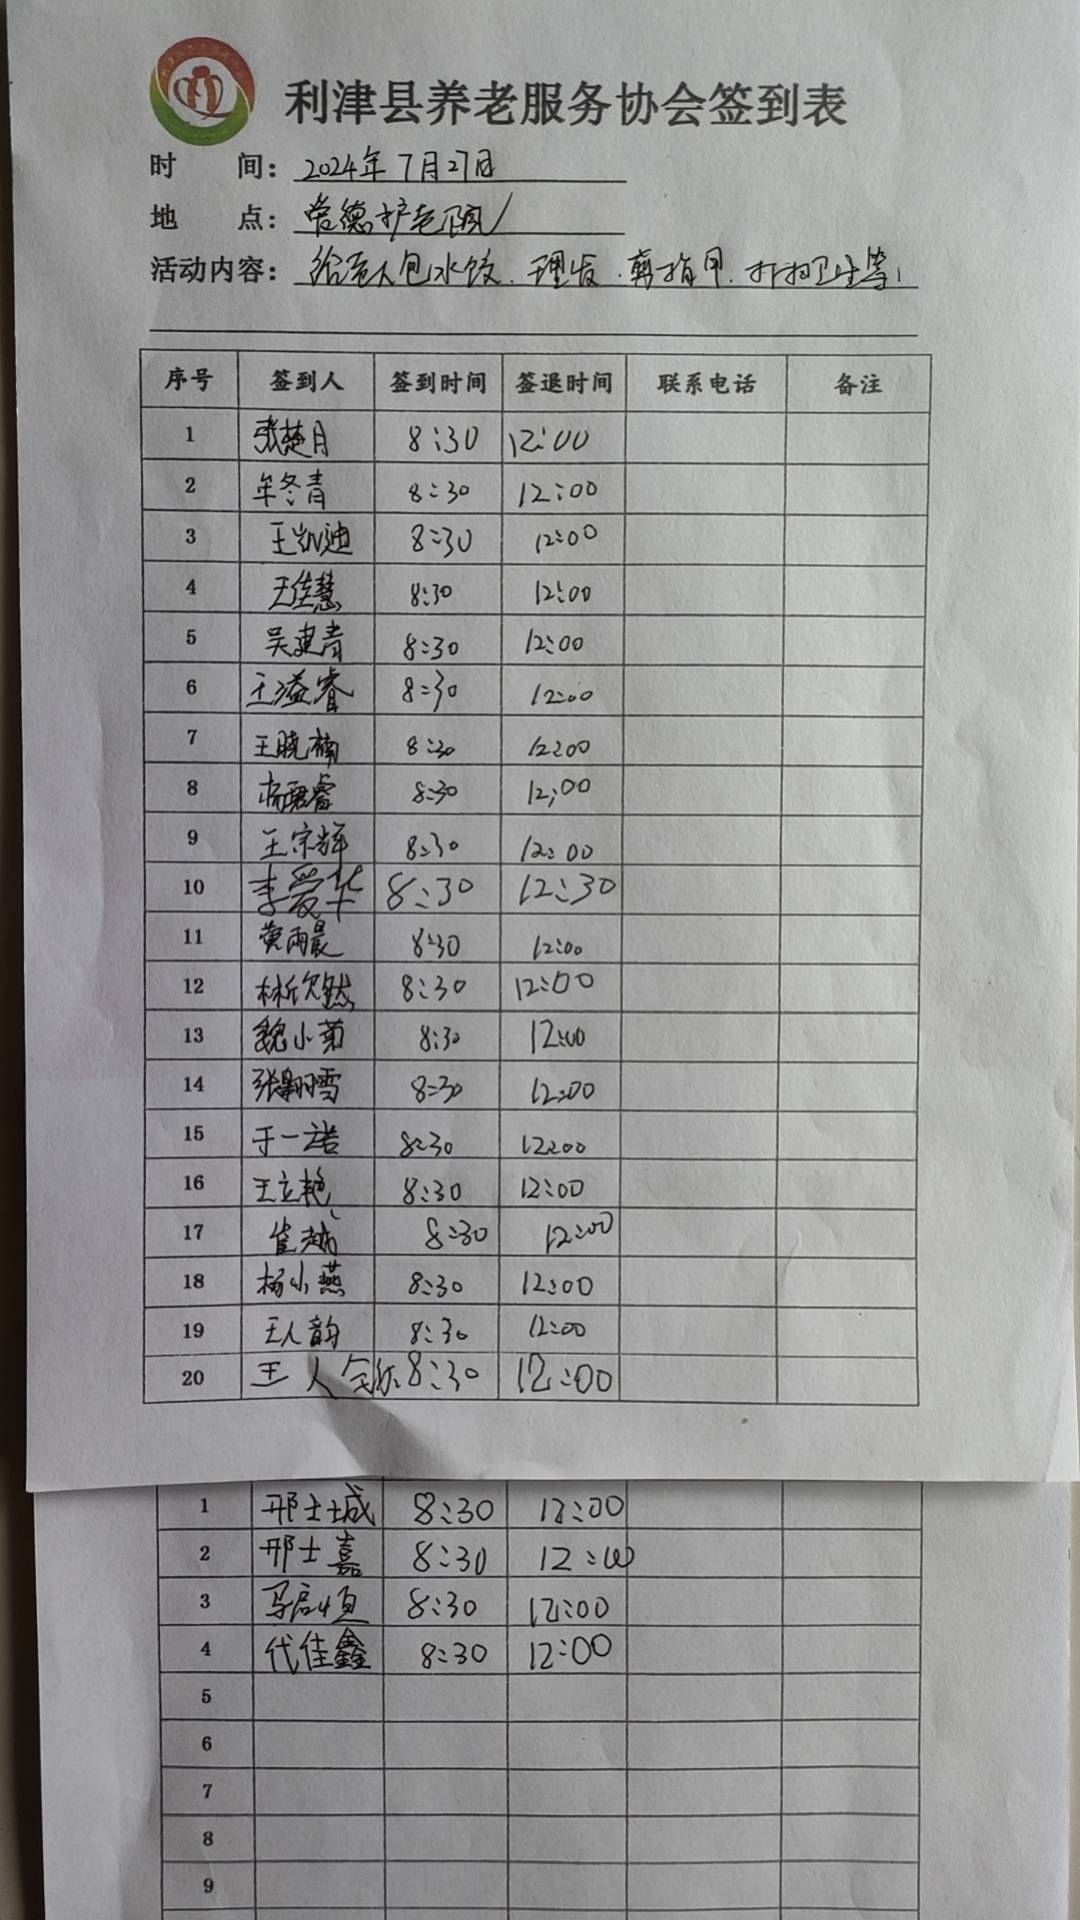 利津县养老服务协会签到表
时 间: 2024年7月27日
地 点: 德护老院
活动内容: 给老人包水饺.理发.剪指甲.打扫卫生等
序号 签到人 签到时间 签退时间 联系电话 备注
1 张楚月 8:30 12:00
2 年冬青 8:30 12:00
3 王凯迪 8:30 12:00
4 王佳慧 8:30 12:00
5 吴建青 8:30 12:00
6 王溢睿 8:30 12:00
7 王晓楠 8:30 12:00
8 杨君睿 8:30 12:00
9 王宗辉 8:30 12:00
10 李爱华 8:30 12:30
11 黄雨晨 8:30 12:00
12 林欣然 8:30 12:00
13 魏小菊 8:30 12:00
14 张翾雪 8:30 12:00
15 于一诺 8:30 12:00
16 王立艳 8:30 12:00
17 崔越 8:30 12:00
18 杨小燕 8:30 12:00
19 王人韵 8:30 12:00
20 王人 8:30 12:00
1 邢士城 8:30 12:00
2 邢士嘉 8:30 12:00
3 马启恒 8:30 12:00
4 代佳鑫 8:30 12:00
5
6
7
8
9